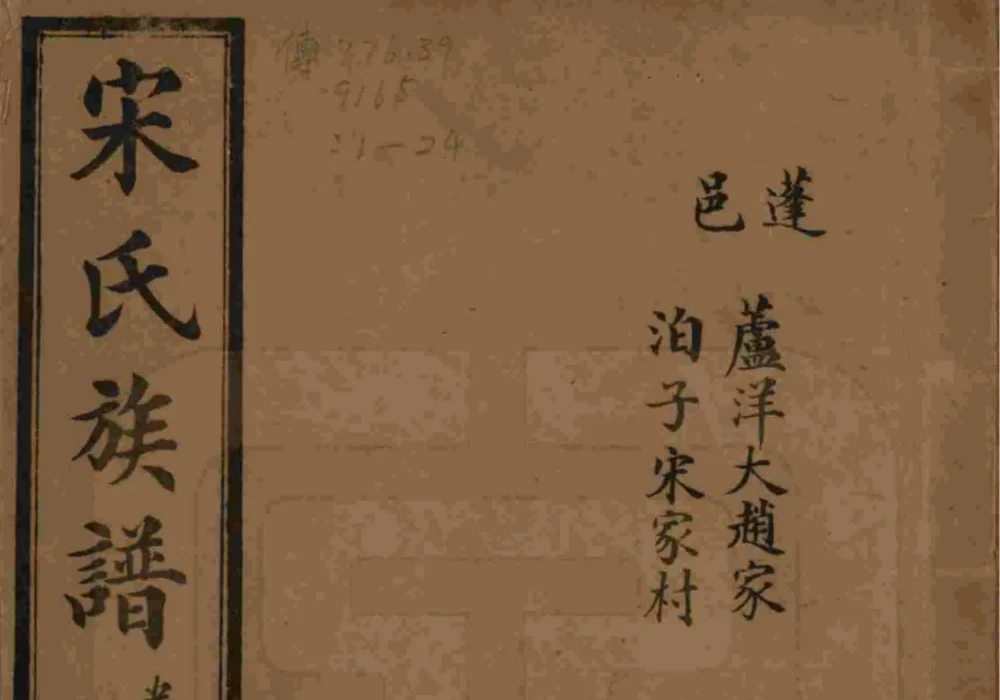 蓬
邑
蘆洋大趙家
泊子宋家村
傳 776.39
9165
21-24
宋氏族譜